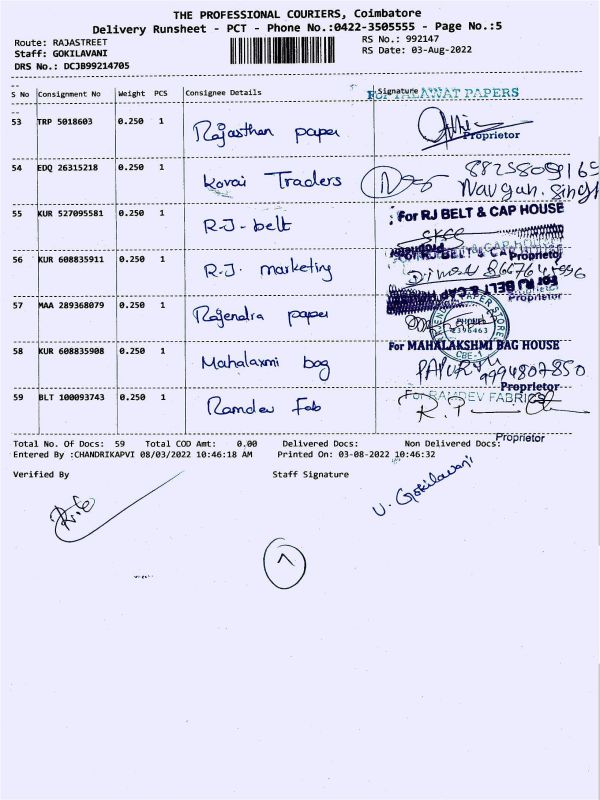 THE PROFESSIONAL COURIERS, Coimbatore
Delivery Runsheet - PCT - Phone No.:0422-3505555 - Page No.:5
Route: RAJASTREET
RS No.: 992147
Staff: GOKILAVANI
RS Date: 03-Aug-2022
DRS No.: DCJB99214705
S No Consignment No Weight PCS Consignee Details Signature
For TALAWAT PAPERS
53 TRP 5018603 0.250 1 Rajasthan paper
Proprietor
54 EDQ 26315218 0.250 1 Kovai Traders
Navgan. Singh
55 KUR 527095581 0.250 1 R-J-belt
For RJ BELT & CAP HOUSE
Proprietor
56 KUR 608835911 0.250 1 R.J. marketing
For RJ BELT & CAP
Proprietor
57 MAA 289368079 0.250 1 Rajendra paper
PAPER STORE
PHONE
2396463
CBE-1
58 KUR 608835908 0.250 1 Mahalaxmi bag
For MAHALAKSHMI BAG HOUSE
9994807850
Proprietor
59 BLT 100093743 0.250 1 Ramdev Fab
For RAMDEV FABRICS
Proprietor
Total No. Of Docs: 59 Total COD Amt: 0.00 Delivered Docs: Non Delivered Docs:
Entered By :CHANDRIKAPVI 08/03/2022 10:46:18 AM Printed On: 03-08-2022 10:46:32
Verified By Staff Signature
V. Gokilavani